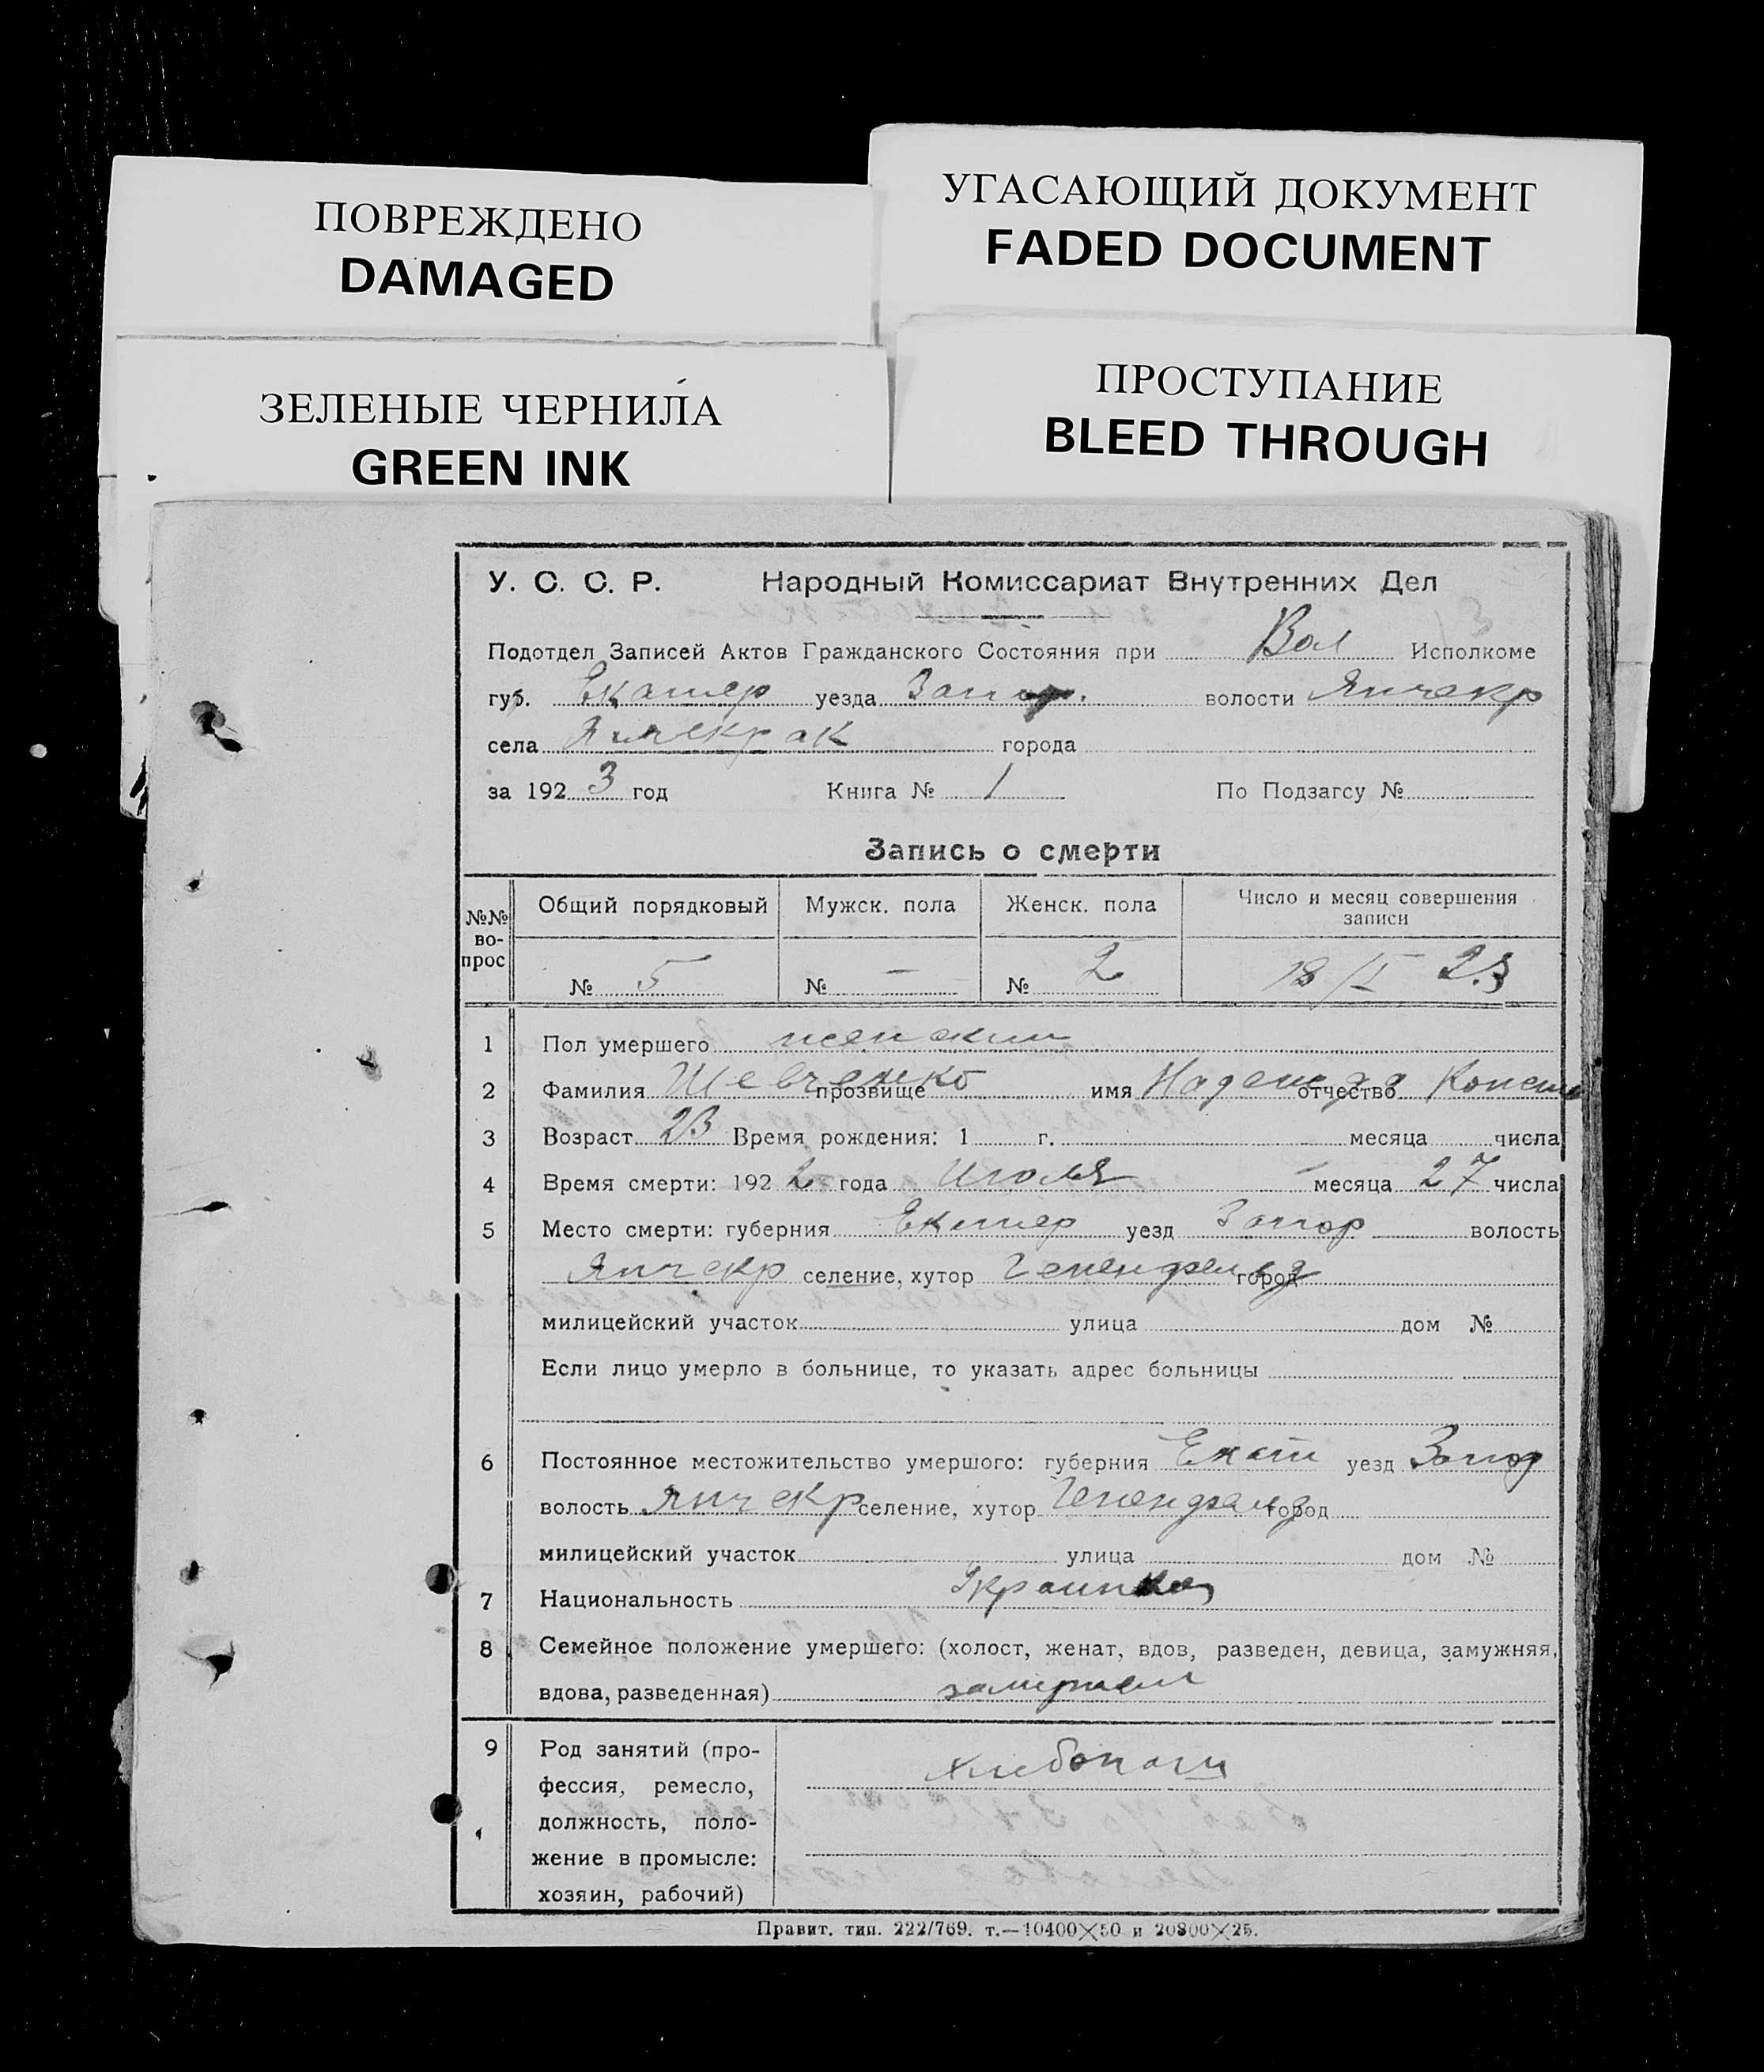 ПОВРЕЖДЕНО
DAMAGED
УГАСАЮЩИЙ ДОКУМЕНТ
FADED DOCUMENT
ЗЕЛЕНЫЕ ЧЕРНИЛА
GREEN INK
ПРОСТУПАНИЕ
BLEED THROUGH
У. С. С. Р. Народный Комиссариат Внутренних Дел
Подотдел Записей Актов Гражданского Состояния при Вол Исполкоме
губ. Екатер уезда Запор. волости Янчекр
села Янчекрак города
за 1923 год Книга № 1 По Подзагсу №
Запись о смерти
№№ во-прос Общий порядковый Мужск. пола Женск. пола Число и месяц совершения записи
№ 5 № — № 2 18/I 23
1 Пол умершего женский
2 Фамилия Шевченко прозвище имя Надежда отчество Конст
3 Возраст 23 Время рождения: 1 г. месяца числа
4 Время смерти: 1922 года Июля месяца 27 числа
5 Место смерти: губерния Екатер уезд Запор волость
Янчекр селение, хутор город
милицейский участок улица дом №
Если лицо умерло в больнице, то указать адрес больницы
6 Постоянное местожительство умершого: губерния Екат уезд Запор
волость Янчекр селение, хутор город
милицейский участок улица дом №
7 Национальность Украинка
8 Семейное положение умершего: (холост, женат, вдов, разведен, девица, замужняя,
вдова, разведенная) замужняя
9 Род занятий (про-
фессия, ремесло,
должность, поло-
жение в промысле:
хозяин, рабочий)
хлебопаш
Правит. тип. 222/769. т.—10400×50 и 20800×25.